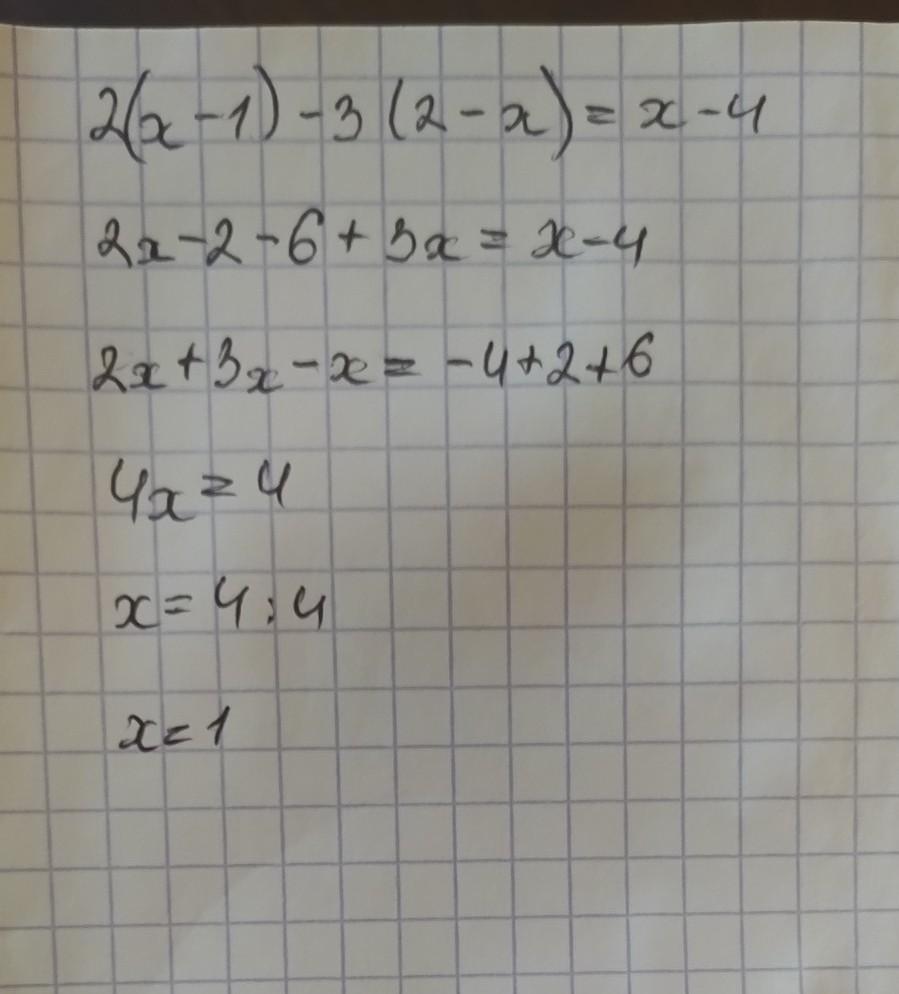 2(x-1)-3(2-x)=x-4
2x-2-6+3x=x-4
2x+3x-x=-4+2+6
4x=4
x=4:4
x=1